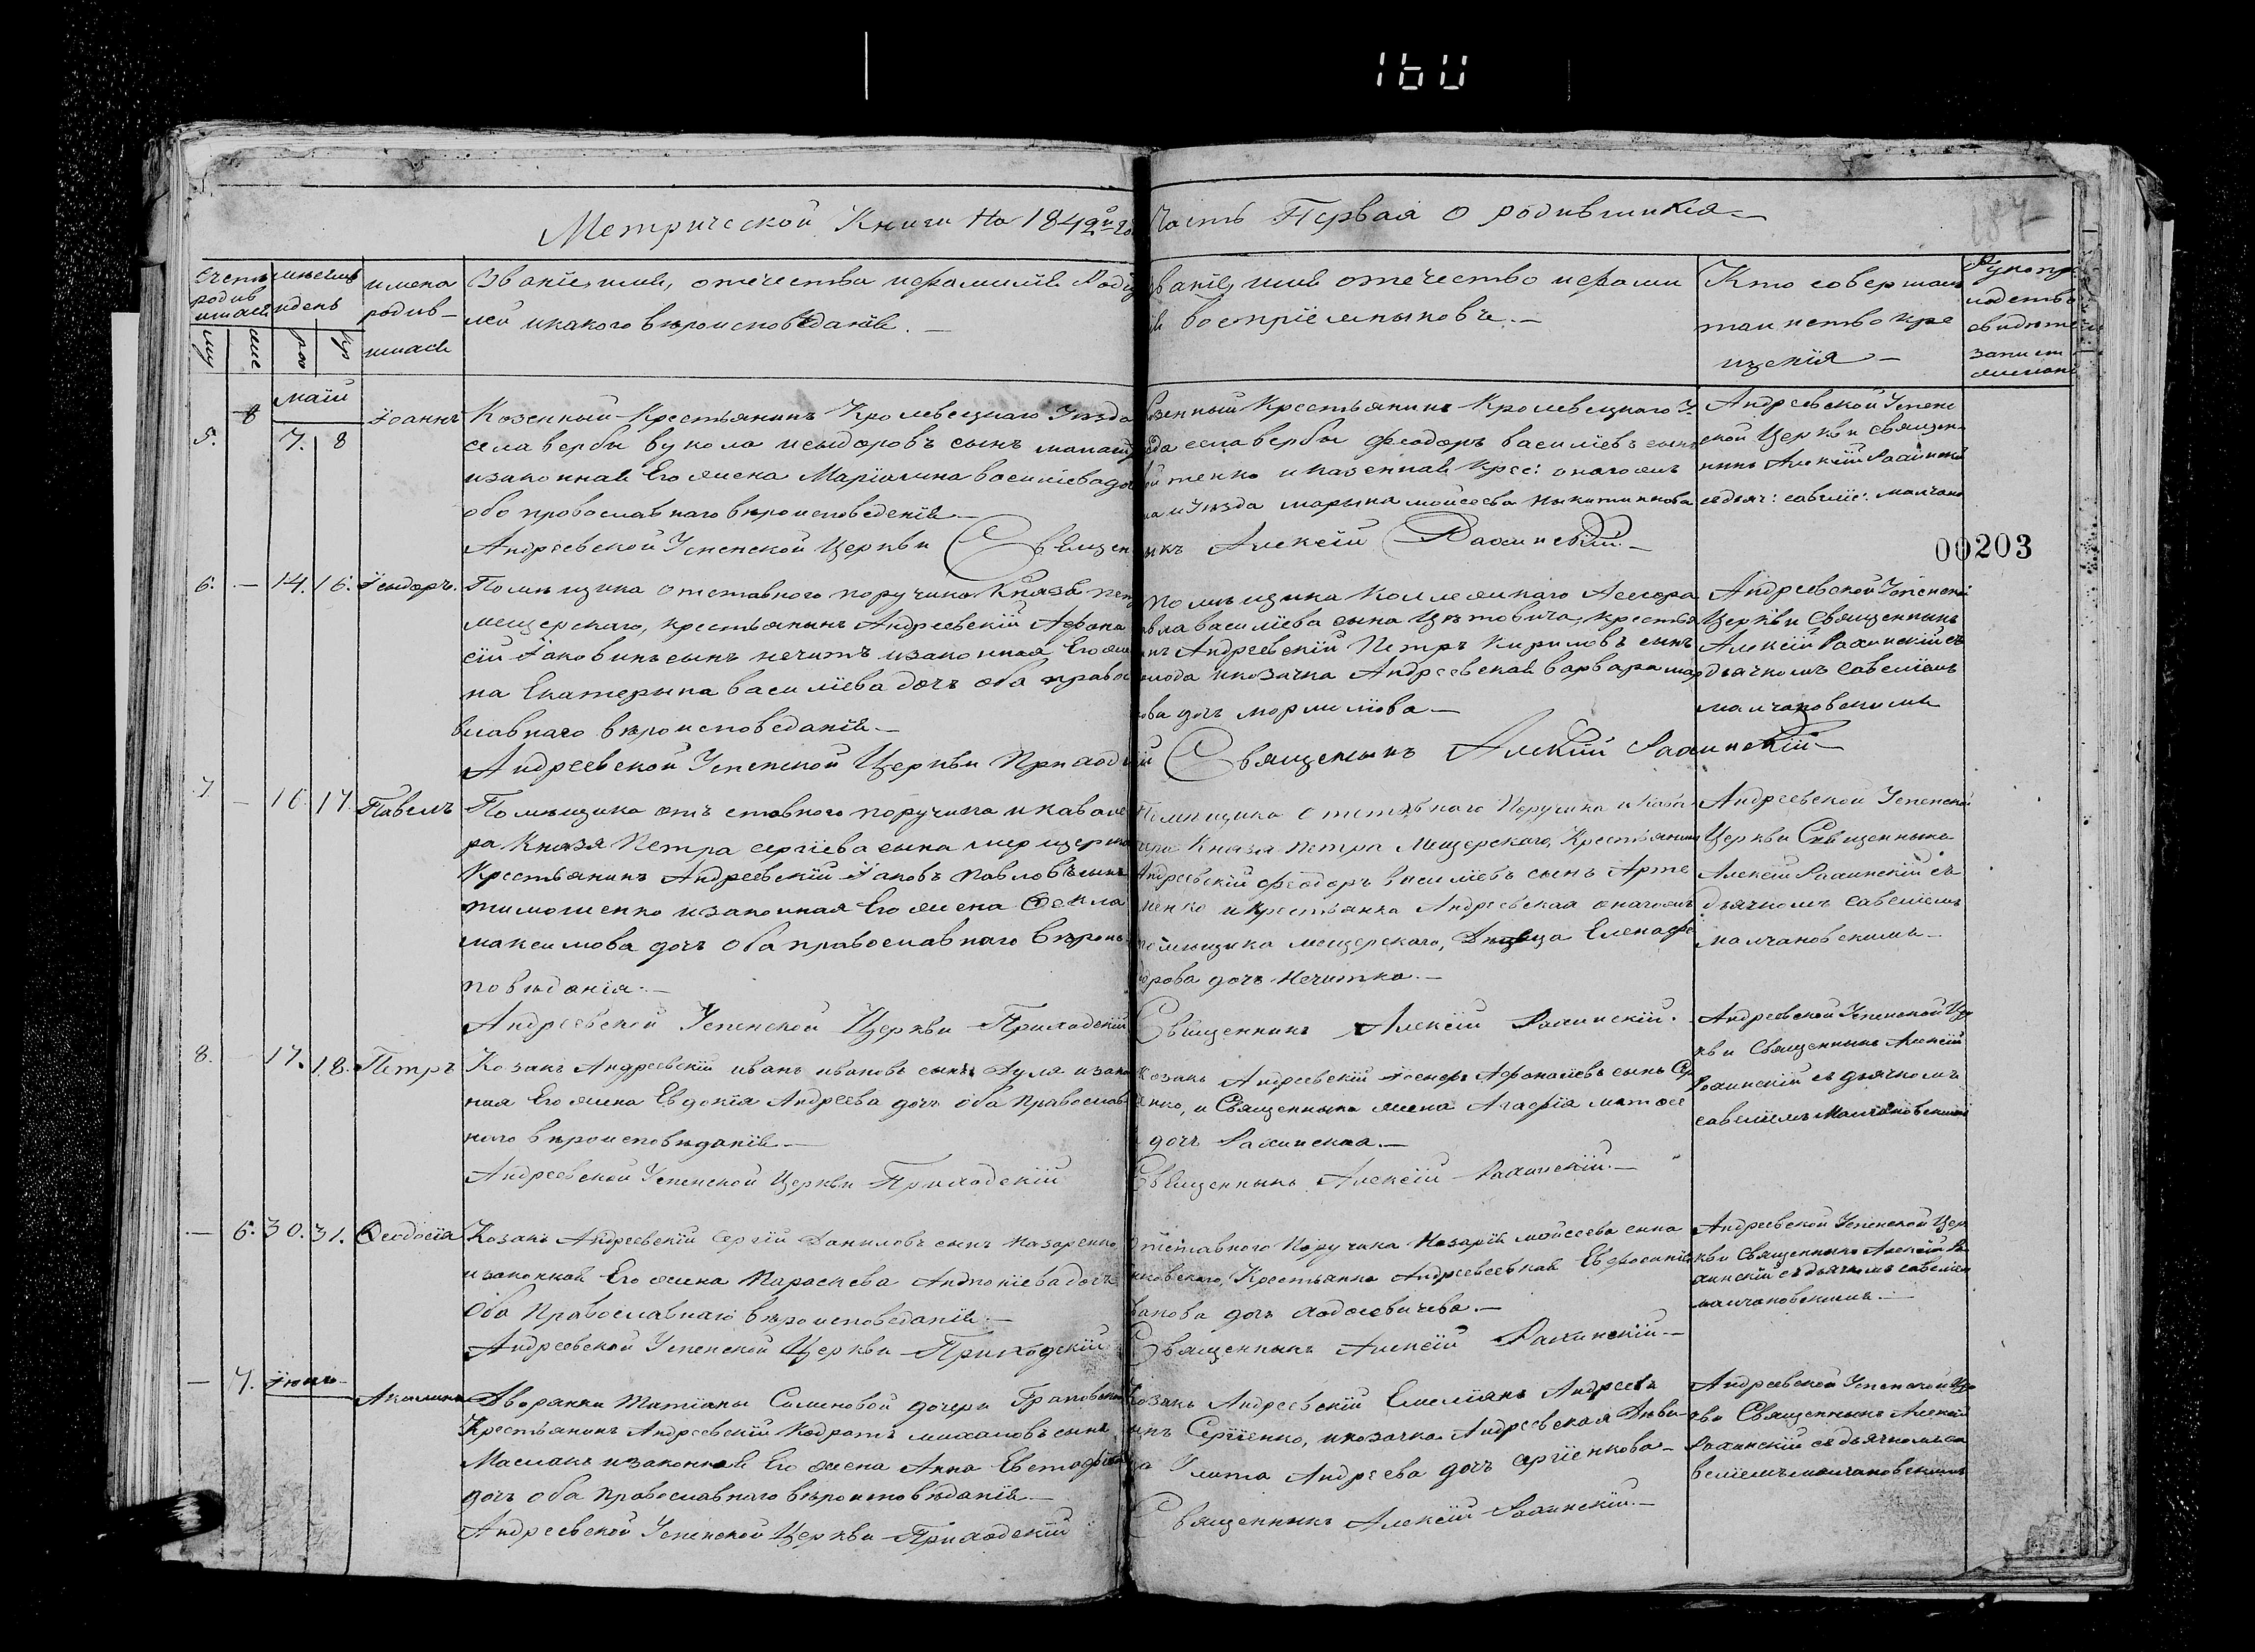 160
Метрической Книги На 1842й го
Часть Первая о родившихся
187
Счетъ родив шихся
месяцъ и день
имена родив– шихся
Званіе, имя, отечества и фамилія Роди
лей и какого вѣроисповеданія.
званіе, имя отечество и фамил
ія воспріемныковъ.
Кто совершалъ
таинство кре
щенія
Рукопр
ладство
свидѣте
записи
желані
му
жс
ро
кр
май
5.
7. 8
Іоаннъ
Козенный Крестьянинъ Кролевецкаго Уезда
села вербы вукола исыдоровъ сынъ
изаконная Его жена Маріамна василіева доч
оба провославнаго вѣроисповеденія
Андреевской Успенской Церкви Священ
озенный Крестьянинъ Кролевецкаго У
ѣзда села вербы Феодоръ василіевъ сынъ
тенко и казенная Крес: оногожъ
Уѣзда марына моисеева Ныкитинкова
ыкъ Алексій Рахинскій
Андреевской Успен
ской Церкви священ
никъ Алексій Рахинскій
съ дьяч: савеліе: малчано
00203
6. – 14. 16. Ісыдоръ.
Помѣщика отставного поручика Князя петр
мещерскаго, крестьянинъ Андреевскій Афона
сій Іаковинъ сынъ нечитъ изаконная Его же
на Екатерына василіева дочъ оба право
вславнаго вѣроисповеданія
Андреевской Успенской Церкви Приход
помѣщика Коллежскаго Ассесора
авла василіева сына Цѣтовича, крестья
нъ Андреевскій Петръ Кириловъ сынъ
и козачка Андреевская варвара мар
кова дочъ
Священыкъ Алексій Рахинскій
Андреевской Успенской
Церкви Священныкъ
Алексій Рахинскій съ
дьячкомъ савеліемъ
малчановскимъ
7. – 16. 17. Павелъ
Помѣщика отъставного поручика и кавале
ра Князя Петра сергіева сына мерщерско
Крестьянинъ Андреевскій Іаковъ Павловъ сынъ
тимошенко изаконная Его жена Фекла
максимова дочъ Оба православнаго вѣроис
повѣданія.
Андреевской Успенской Церкви Приходскій
Помѣщика отставнаго Поручика и Кава
лера Князя Петра Мещерскаго, Крестьянинъ
Андреевскій феодоръ василіевъ сынъ Арте
менко и крестьянка Андреевская оногожъ
помѣщика мещерскаго, Дѣвица Елена фе
одрова дочъ Нечитка.
Священникъ Алексій Рахинскій.
Андреевской Успенской
Церкви Священныкъ
Алексій Рахинскій съ
дьячкомъ савеліемъ
малчановскимъ
8. 17. 18. Петръ
Козакъ Андреевскій иванъ ивановъ сынъ Дуля изакон
ная Его жена Евдокія Андреева дочъ Оба Православ
наго вѣроисповѣданія
Андреевской Успенской Церкви Приходскій
Козакъ Андреевскій Іосифъ Афонасіевъ сынъ Сер
енко, и Священныка жена Агафія матфее
дочъ Рахинская.
Священныкъ Алексій Рахинскій.
Андреевской Успенской Цер
кви Священныкъ Алексій
Рахинскій съ дьячкомъ
савеліемъ Малчановскимъ
– 6. 30. 31. Феодосія
Козакъ Андреевскій Сергій Даниловъ сынъ Назаренко
изаконная Его жена Параскева Антоніева дочъ
Оба Православнаго вѣроисповеданія
Андреевской Успенской Церкви Приходскій
Отставного Поручика Назарія моисеева сына
Крестьянка Андреевсевкая Евфросинія
ванова дочъ ходосевичева.
Священныкъ Алексій Рахинскій
Андреевской Успенской Цер
кви Священныкъ Алексій Ра
хинскій съ дьячкомъ савеліем
малчановскимъ.
– 7. Іюнь
Акилина
Дворянки Татіаны Симеоновой дочери Граповско
Крестьянинъ Андреевскій Кодратъ михаловъ сынъ
Маслакъ изаконная Его жена Анна Евстафіева
дочъ оба православнаго вѣроисповѣданія
Андреевской Успенской Церкви Приходскій
Козакъ Андреевскій Емеліянъ Андреевъ
ынъ Сергіенко, и козачка Андреевская Дѣви
ца Улита Андреева дочъ сергіенкова
Священныкъ Алексій Рахинскій.
Андреевской Успенской Це
ркви Священныкъ Алексій
Рахинскій съ дьячкомъ са
веліемъ малчановскимъ